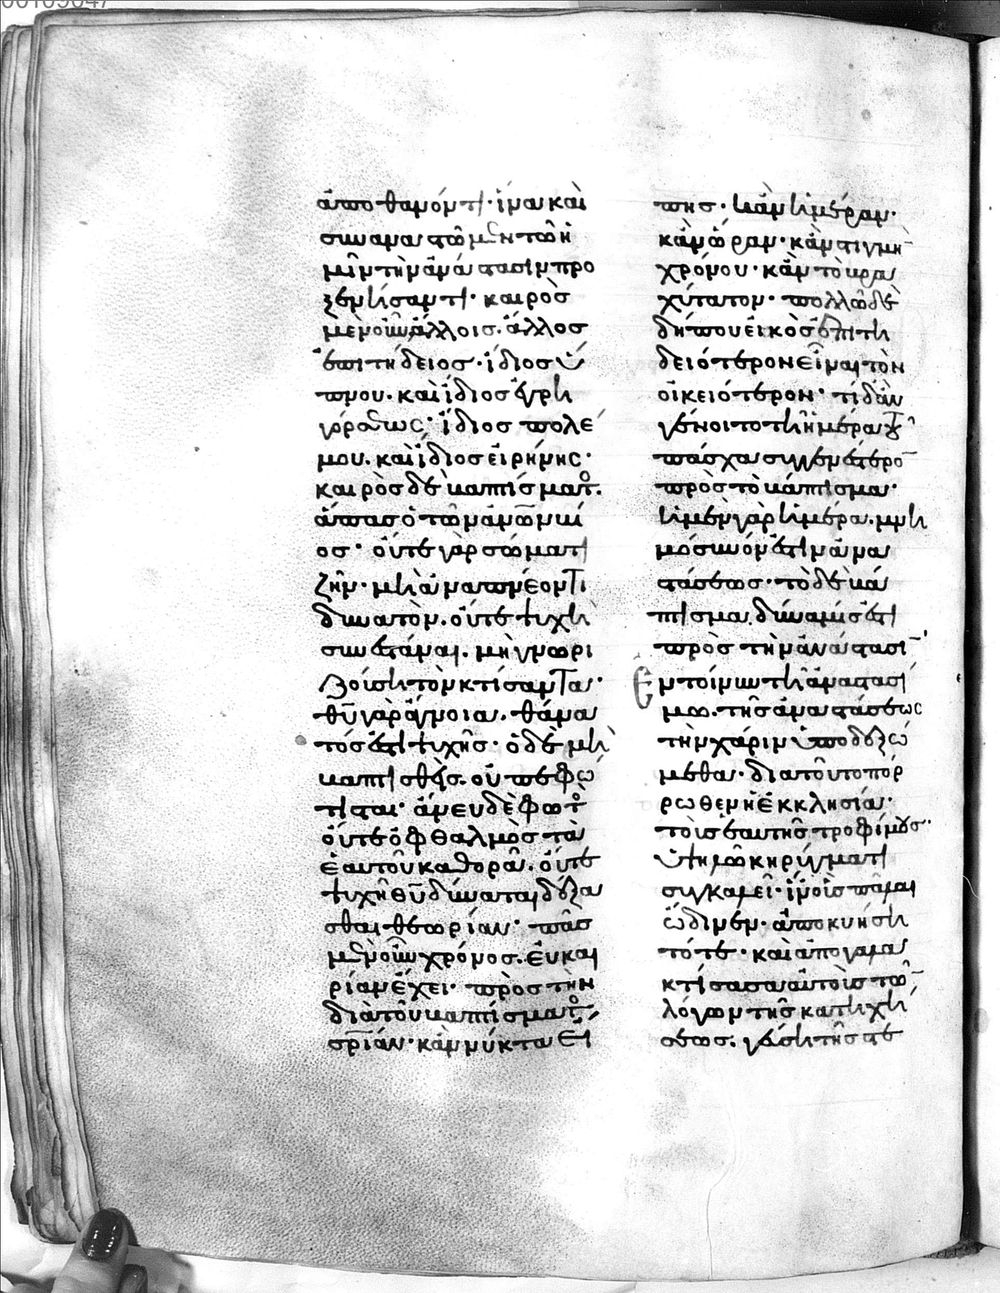 ἀποθανόντι· ἵνα καὶ
συναναστῶμεν τῶ ἡ
μῖν τὴν ἀνάστασιν προ
ξενήσαντι· καιρὸς
μὲν οὖν ἄλλοις ἄλλος
ἐπιτήδειος· ἴδιος ὕ
πνου· καὶ ἴδιος ἐγρη
γόρσεως· ἴδιος πολέ
μου· καὶ ἴδιος εἰρήνης·
καιρὸς δὲ βαπτίσματος·
ἅπας ὁ τῶν ἀνων βί
ος· οὔτε γὰρ σώματι
ζῆν· μὴ ἀναπνέοντι
δυνατὸν· οὔτε ψυχῆ
συνεστάναι· μὴ γνωρι
ζούση τὸν κτίσαντα·
θυ γὰρ ἄγνοια· θάνα
τός ἐστι ψυχῆς· ὁ δὲ μὴ
βαπτισθεὶς· οὐ πεφώ
τισται· ἄνευ δὲ φωτὸς
οὔτε ὀφθαλμὸς τὰ
ἑαυτοῦ καθορᾶ· οὔτε
ψυχὴ θυ δύναται δέξα
σθαι θεωρίαν· πᾶς
μὲν οὖν χρόνος· εὐκαι
ρίαν ἔχει· πρὸς τὴν
διὰ τοῦ βαπτίσματος
σρίαν· κἂν νύκτα εἴ
πης· κἂν ἡμέραν·
κἂν ὥραν· κἂν στιγμὴ
χρόνου· κἂν τὸ βρα
χύτατον· πολλῶ δὲ
δήπου εἰκὸς ἐπιτη
δειότερον εἶναι τὸν
οἰκειότερον· τί δ' ἂν
γένοιτο τῆ ἡμέρα τοῦ
πάσχα συγγενέστερο
πρὸς τὸ βάπτισμα·
ἡ μὲν γὰρ ἡμέρα· μνη
μόσυνόν ἐστιν ἀνα
στάσεως· τὸ δὲ βά
πτισμα δύναμίς ἐστι
πρὸς τὴν ἀνάστασι
Ἐν τοίνυν τῆ ἀναστασί
μω· τῆς ἀναστάσεως
τὴν χάριν ὑποδεξώ
μεθα· διὰ τοῦτο πόρ
ρωθεν ἡ ἐκκλησία·
τοὺς ἑαυτῆς τροφίμους·
ὑψηλῶ κηρύγματι
συγκαλεῖ· ἵν' οὓς πάλαι
ὤδινεν· ἀποκυήση
τότε· καὶ ἀπογαλα
κτίσασα αὐτοὺς τῶ
λόγων τῆς κατηχή
σεως· γεύση τῆς στε